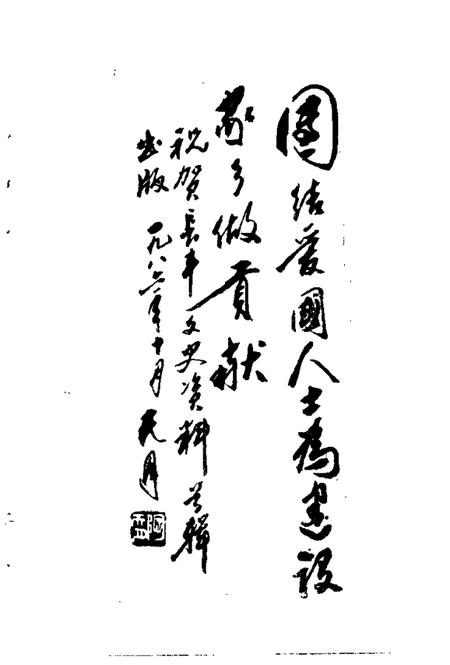 團结爱國人士為建设
家乡做贡献
祝贺長丰文史资料辑
出版 一九八六年十月